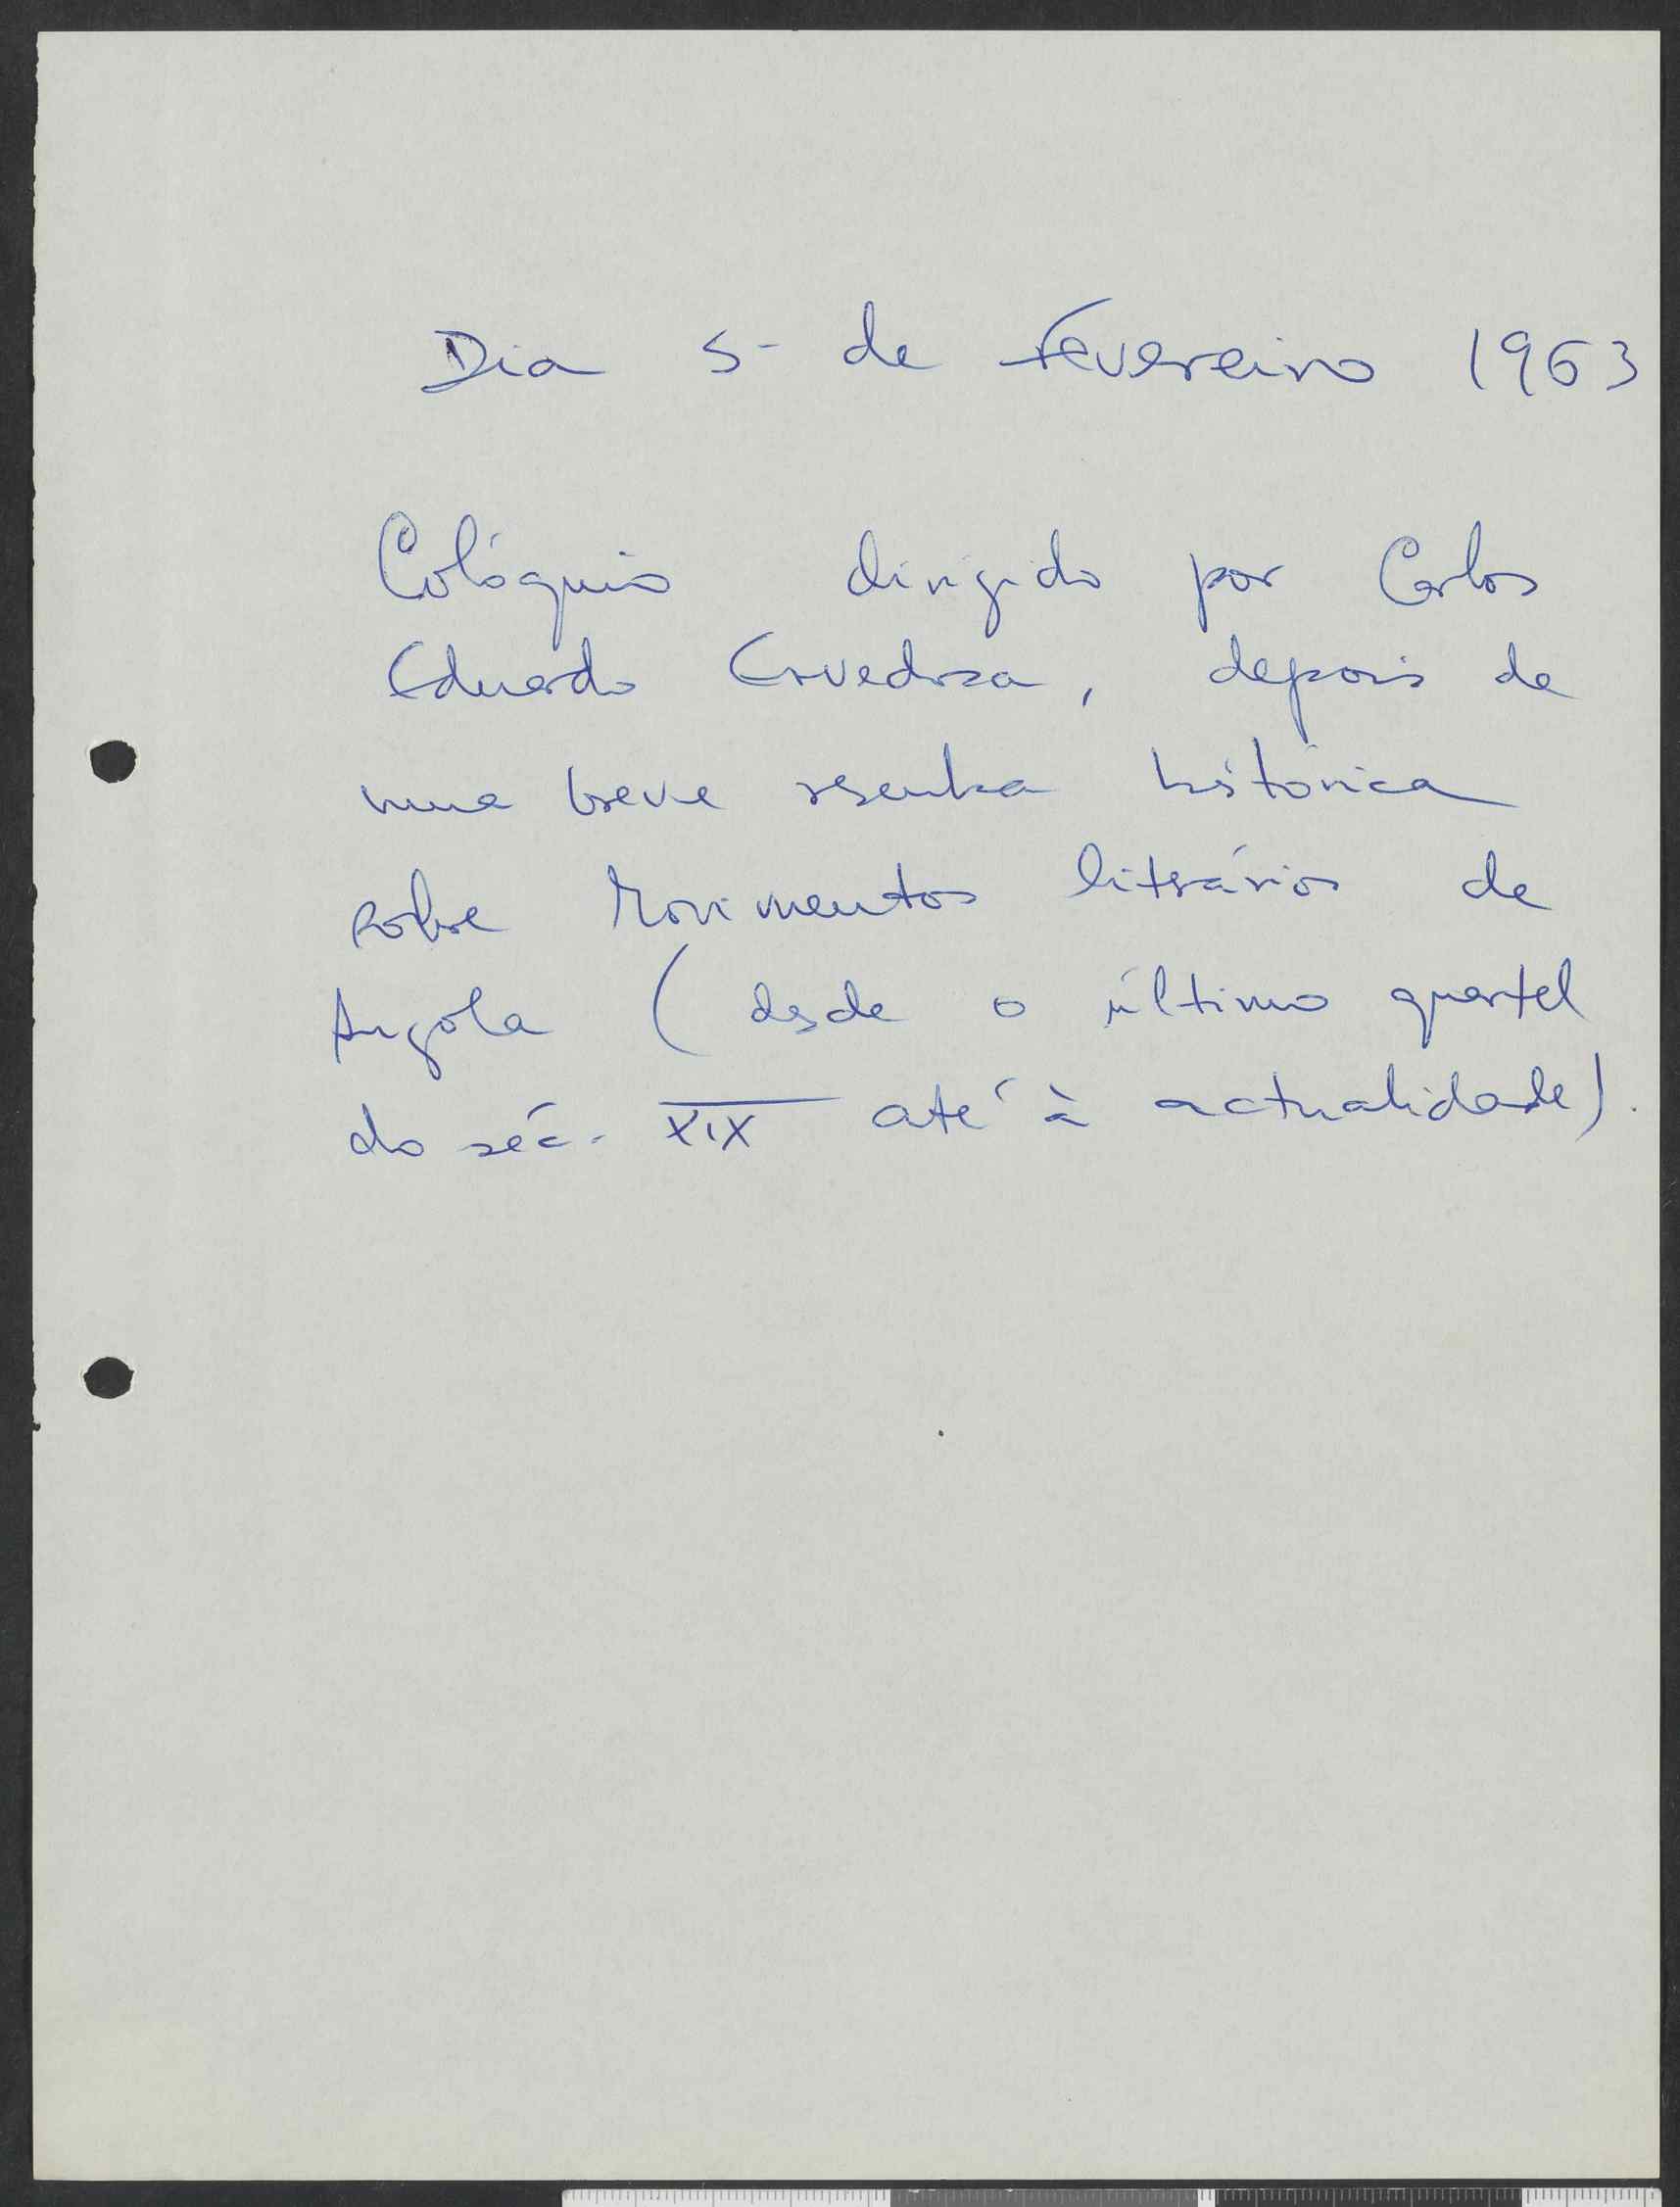 Dia 5 - de Fevereiro 1963
Colóquio dirigido por Carlos
Eduardo Ervedosa, depois de
uma breve resenha histórica
sobre Movimentos literários de
Angola (desde o último quartel
do séc. XIX até à actualidade).